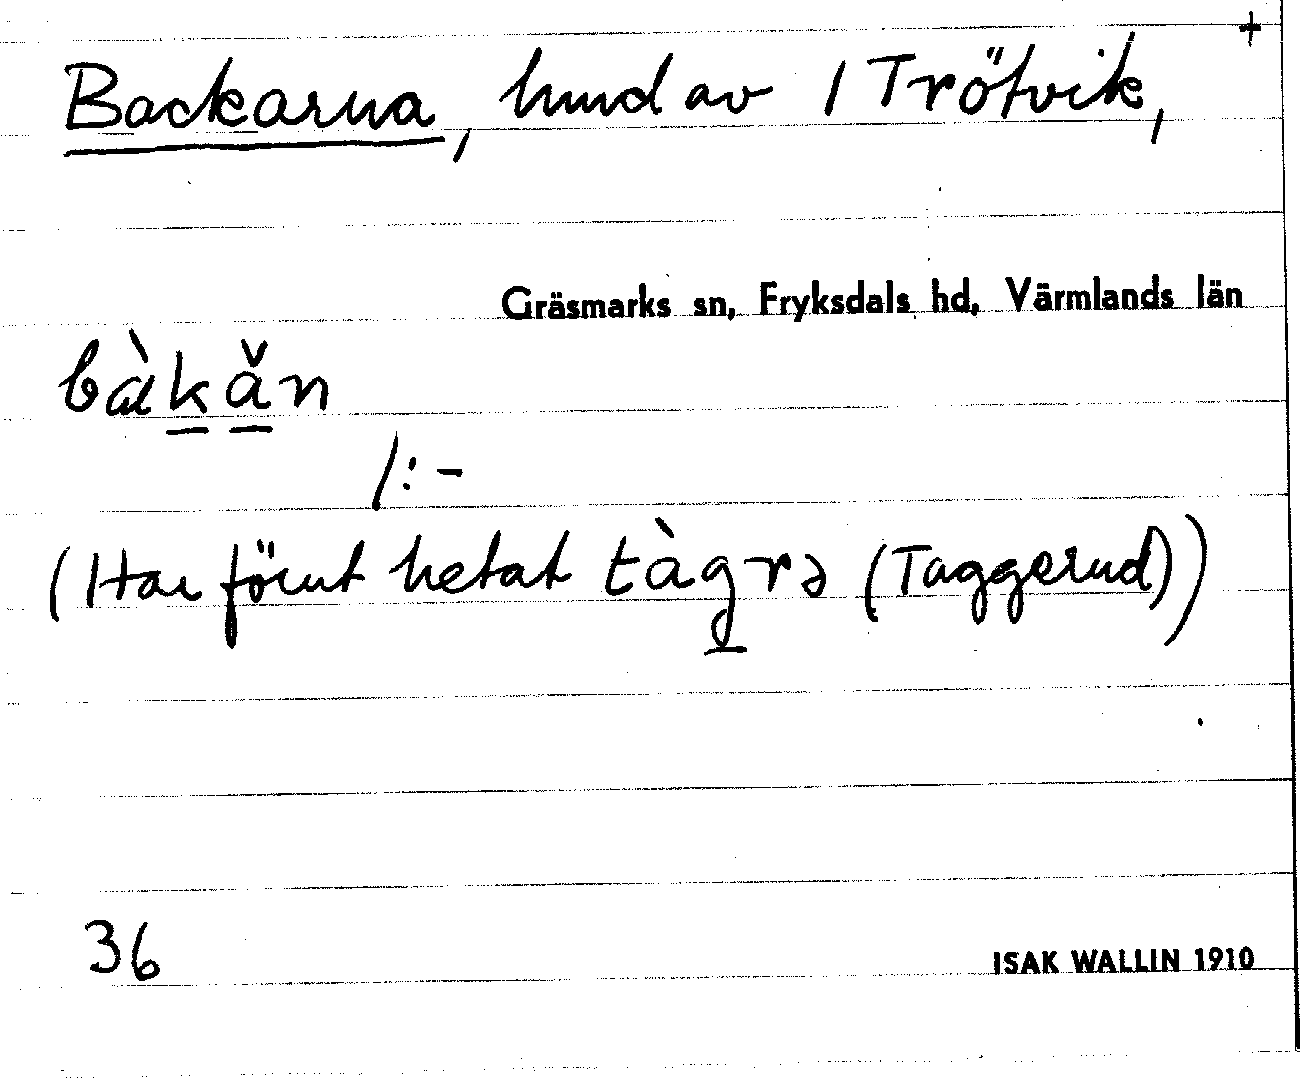 +
Backarna, hmd av 1 Trötvik,
Gräsmarks sn, Fryksdals hd, Värmlands län
bàkǎn
/:-
(Har förut hetat tàgrə (Taggerud))
36
ISAK WALLIN 1910